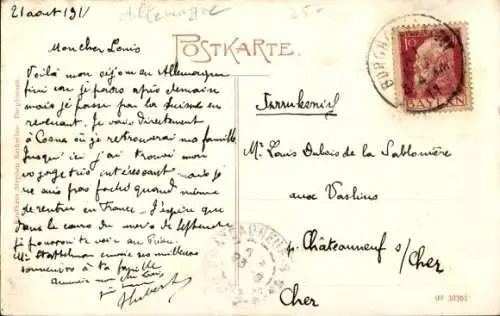 21 aout 1911
Allemagne
25-
Mon cher Louis
POSTKARTE.
Voilà mon séjour en Allemagne
fini car je pars après demain
mais je passe par la Suisse en
revenant. Je vais directement
à Cosne où je retrouverai ma famille
Jusqu'ici j'ai trouvé mon
voyage très intéressant mais je
ne suis pas fâché quand même
de rentrer en France. J'espère que
dans le cours du mois de septembre
je pourrai te voir au
Mr envoie ses meilleurs
souvenirs à ta famille
Hubert
BURGHAUSEN
10
BAYERN
Frankreich
Mr Louis Dubois de la Sablonière
aux Vaslins
p. Châteauneuf s/ Cher
Cher
CHATEAUNEUF S
Burghausen